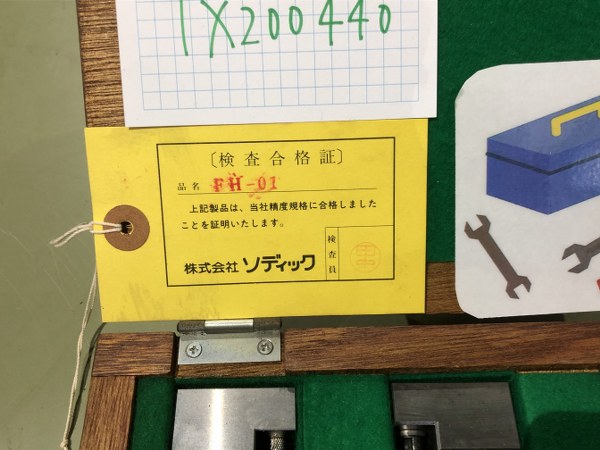 TX200440
〔検査合格証〕
品名 FH-01
上記製品は、当社精度規格に合格しました
ことを証明いたします。
株式会社 ソディック
検査員